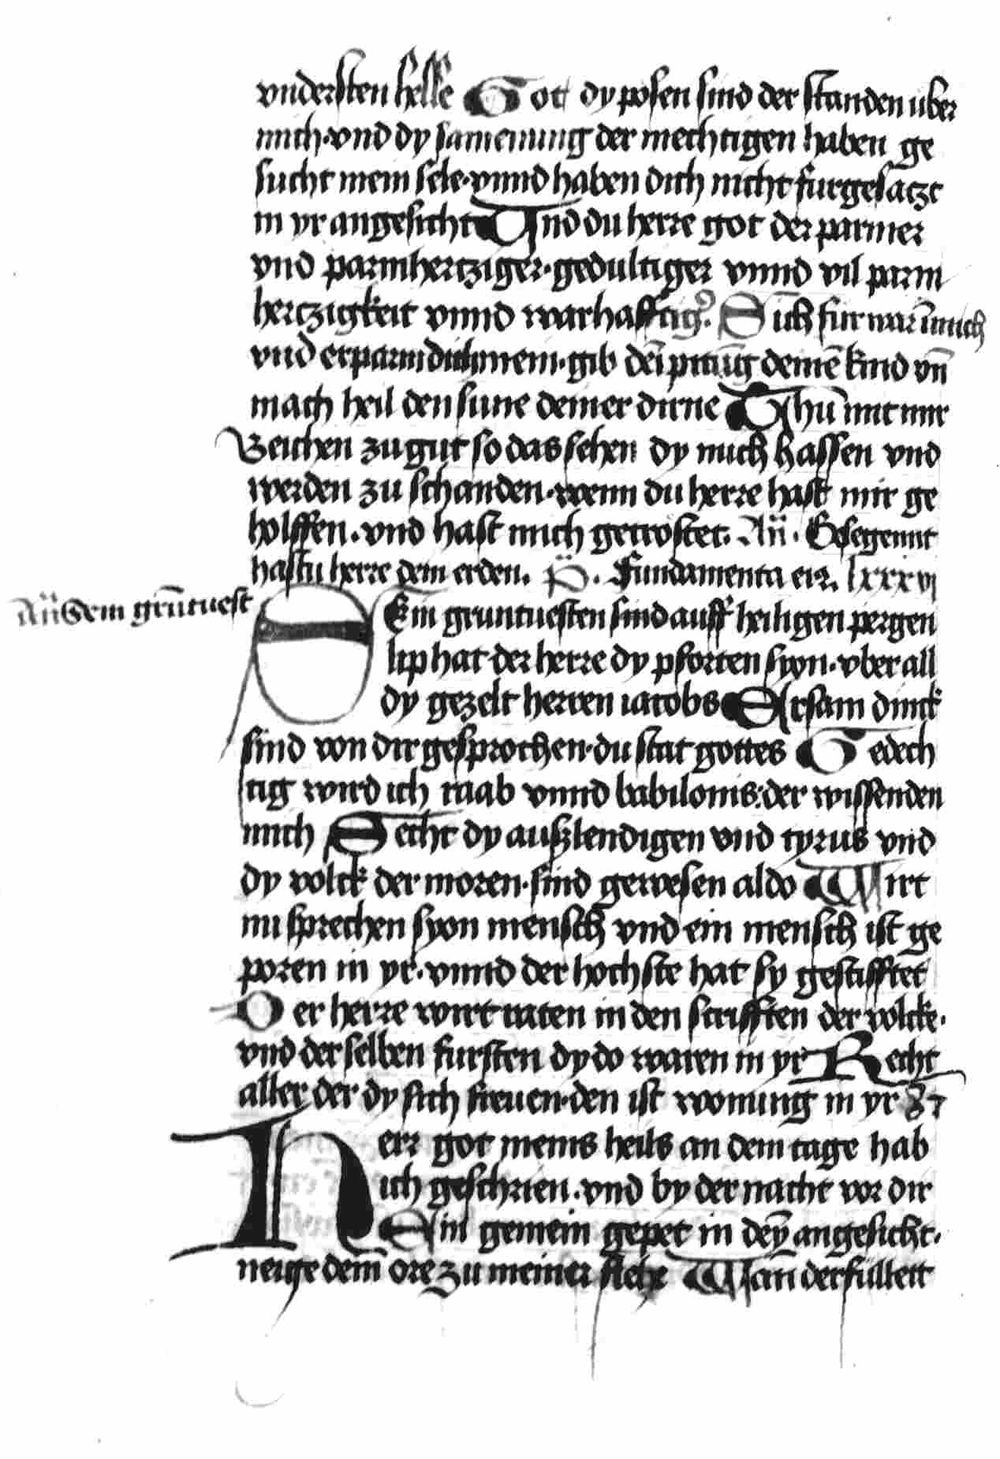 vndersten helle Got dy posen sind der standen uber
mich · vnd dy samenung der mechtigen haben ge
sucht mein sele · vnnd haben dich nicht furgesatzt
in yr angesicht Und du herre got der parmer
vnd parmhertziger · gedultiger vnnd vil parm
hertzigkeit vnnd warhafftig Sich fur war in mich
vnd erparm dich mein · gib dein deinē kind vn̄
mach heil den sune deiner dirne Thu mit mir
Zeichen zu gut so das sehen dy mich hassen vnd
werden zu schanden · wenn du herre hast mir ge
holffen · vnd hast mich getrostet · An̄ · Gesegennt
hastu herre dein erden. P̄. Fundamenta ei9. lxxxvj
An̄ Sein grūtuest
Ein gruntuesten sind auff heiligen pergen
lip hat der herre dy pforten syon · vber all
dy gezelt herren iacobs Ersam dinck
sind von dir gesprochen · du stat gottes Gedech
tig wird ich raab vnnd babilonis : der wissenden
mich Secht dy auszlendigen vnd tyrus vnd
dy volck der moren · sind gewesen aldo Wirt
nu sprechen syon mensch vnd ein mensch ist ge
poren in yr · vnnd der hochste hat sy gestifftet
Der herre wirt in den schrifften der volcke ·
vnd der selben fursten dy do waren in yr Recht
aller der dy sich freuen · den ist wonung in yr
Herr got meins heils an dem tage hab
ich geschrien · vnd by der nacht vor dir
Ein gemein gepet in dey angesicht ·
neige dein ore zu meiner Wan derfullett